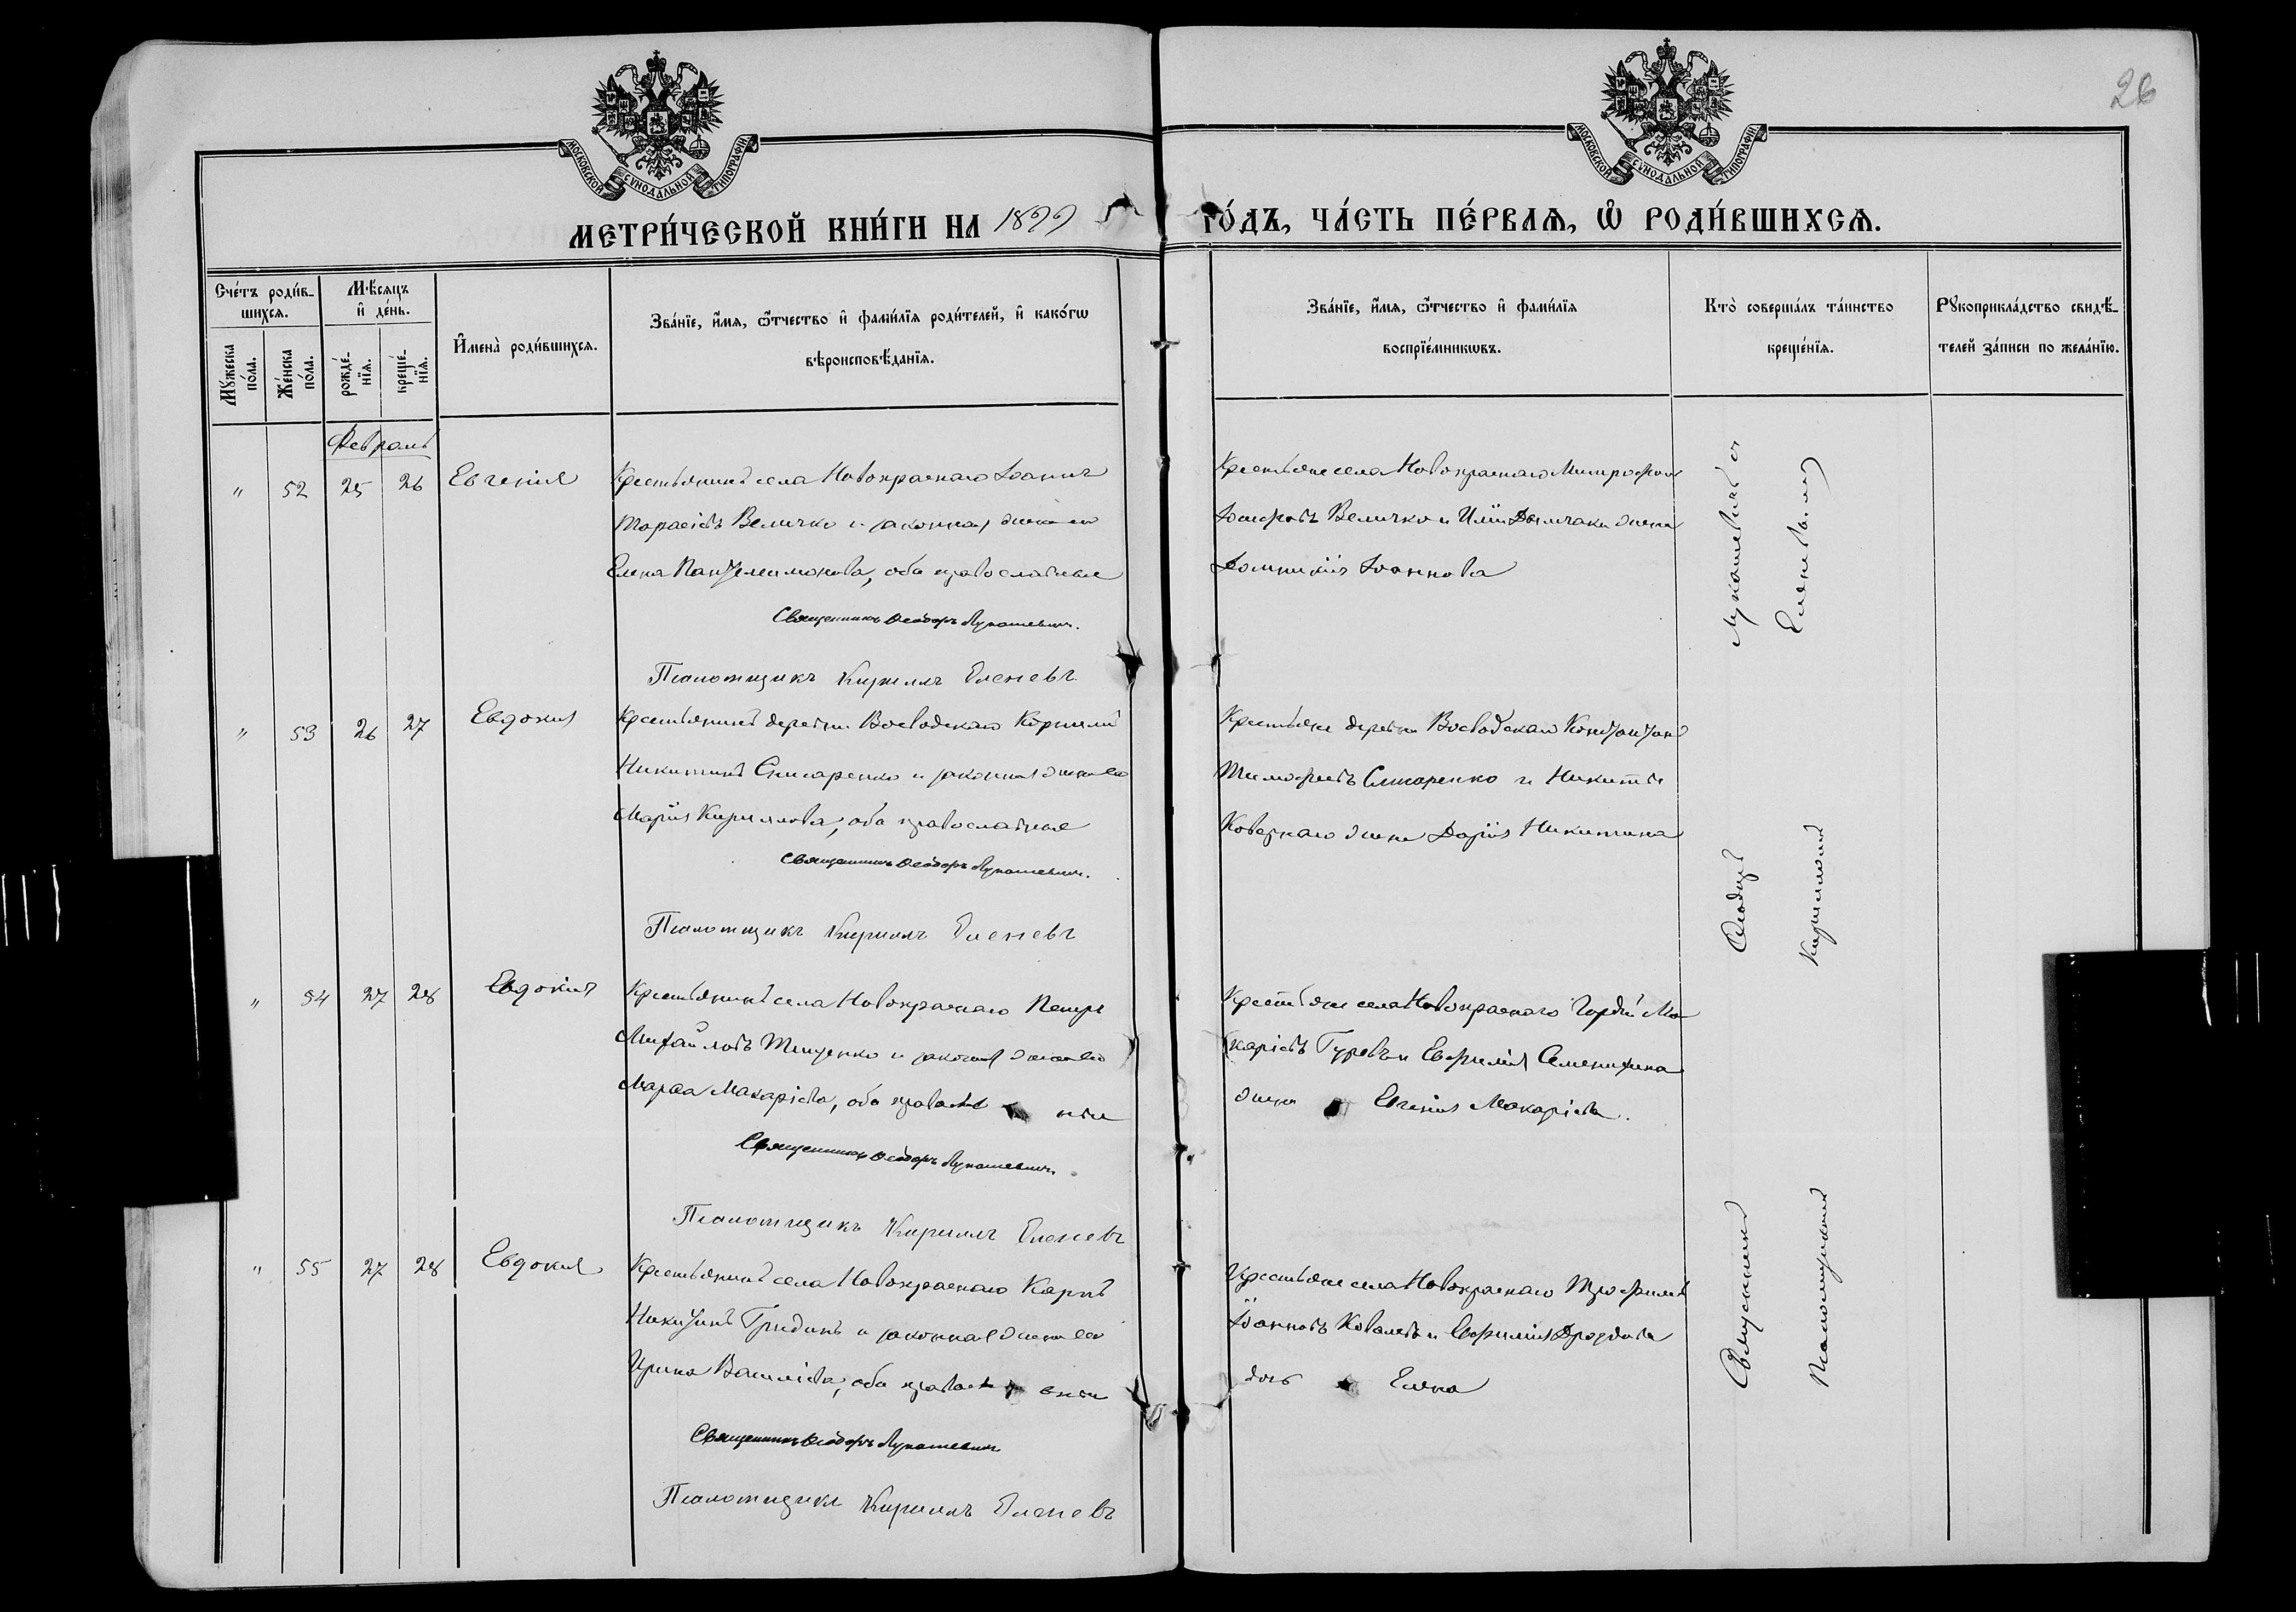 26
МОСКОВСКОЙ СѴНОДАЛЬНОЙ ТИПОГРАФІИ
МОСКОВСКОЙ СѴНОДАЛЬНОЙ ТИПОГРАФІИ
МЕТРИ́ЧЕСКОЙ КНИ́ГИ НА 1899 ГО́ДЪ, ЧА́СТЬ ПЕ́РВАѦ, Ѡ҆ РОДИ́ВШИХСѦ.
Сче́тъ роди́в-
шихсѧ.
Мꙋ́жеска
по́ла.
Же́нска
по́ла.
Мѣ́сѧцъ
и҆ де́нь.
рожде́-
нїѧ.
креще́-
нїѧ.
И҆мена̀ роди́вшихсѧ.
Зва́нїе, и҆́мѧ, ѻ҆́тчество и҆ фами́лїѧ роди́телей, и҆ како́гѡ
вѣроисповѣ́данїѧ.
Зва́нїе, и҆́мѧ, ѻ҆́тчество и҆ фами́лїѧ
воспрїе́мникѡвъ.
Кто̀ соверша́лъ та́инство
креще́нїѧ.
Рꙋкоприкла́дство свидѣ́-
телей за́писи по жела́нїю.
Февраль
" 52 25 26 Евгенія Крестьянинъ села Новокраснаго Іоаннъ
Тарасіевъ Величко и законная жена его
Елена Пантелеимонова, оба православные
Священникъ Ѳеодоръ Лукашевичъ.
Псаломщикъ Кириллъ Еленевъ
Крестьяне села Новокраснаго Митрофанъ
Іосифовъ Величко и Иліи жена
Домникія Іоаннова
" 53 26 27 Евдокія Крестьянинъ деревни Воеводскаго Корнилій
Никитинъ Слюсаренко и законная жена его
Марія Кириллова, оба православные
Священникъ Ѳеодоръ Лукашевичъ.
Псаломщикъ Кириллъ Еленевъ
Крестьяне деревни Воеводскаго Константинъ
Тимофеевъ Слюсаренко и Никиты
жена Дарія Никитина
" 54 27 28 Евдокія Крестьянинъ села Новокраснаго Петръ
Михайловъ Тищенко и законная жена его
Марѳа Макаріева, оба правосл ные
Священникъ Ѳеодоръ Лукашевичъ.
Псаломщикъ Кириллъ Еленевъ
Крестьяне села Новокраснаго Гордій Ма
каріевъ Гуровъ и Евфимія Семенихина
жена Евгенія Макаріева.
" 55 27 28 Евдокія Крестьянинъ села Новокраснаго Карпъ
Никитинъ Гридинъ и законная жена его
Ирина Василіева, оба правосл вные
Священникъ Ѳеодоръ Лукашевичъ
Псаломщикъ Кириллъ Еленевъ
Крестьяне села Новокраснаго Трофимъ
Іоанновъ Ковалевъ и Евфимія Дроздова
дочь Елена
Священникъ Ѳеодоръ Лукашевичъ съ
Псаломщикомъ Кирилломъ Еленевымъ